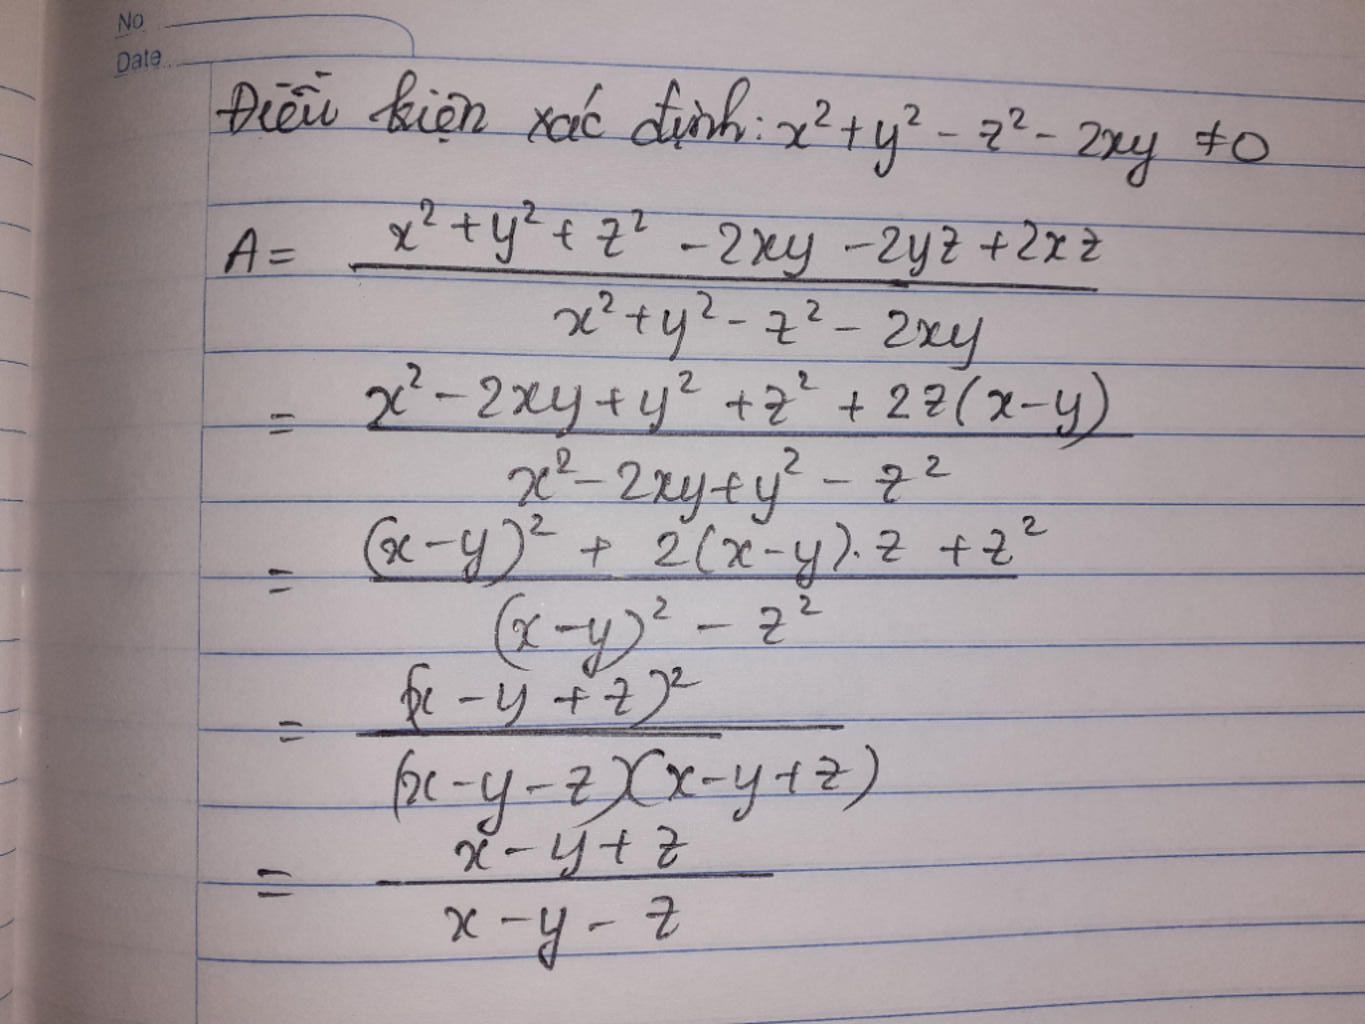 No
Date
Điều kiện xác định: x² + y² - z² - 2xy ≠ 0
A = (x² + y² + z² - 2xy - 2yz + 2xz) / (x² + y² - z² - 2xy)
= (x² - 2xy + y² + z² + 2z(x-y)) / (x² - 2xy + y² - z²)
= ((x-y)² + 2(x-y).z + z²) / ((x-y)² - z²)
= (x - y + z)² / ((x-y-z)(x-y+z))
= (x - y + z) / (x - y - z)